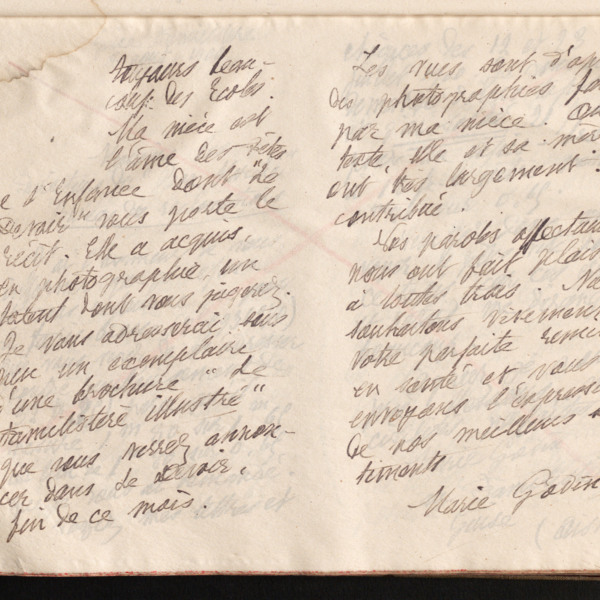 toujours beau-
coup des Écoles.
Ma nièce est
l'âme des Fêtes
e d'Enfance dont "Le
Devoir" vous porte le
récit. Elle a acquis
en photographie un
talent dont vous jugerez.
Je vous adresserai sous
peu un exemplaire
d'une brochure "Le
Familistère illustré"
que vous verrez annon-
cer dans Le Devoir,
fin de ce mois.
Les vues sont d'ap
des photographies
par ma nièce.
texte elle et sa mère
ont très largement
contribué.
Vos paroles affectueu
nous ont fait plaisi
à toutes trois. No
souhaitons vivement
votre parfaite remise
en santé et vous
envoyons l'expressi
de nos meilleurs
timents
Marie Godin